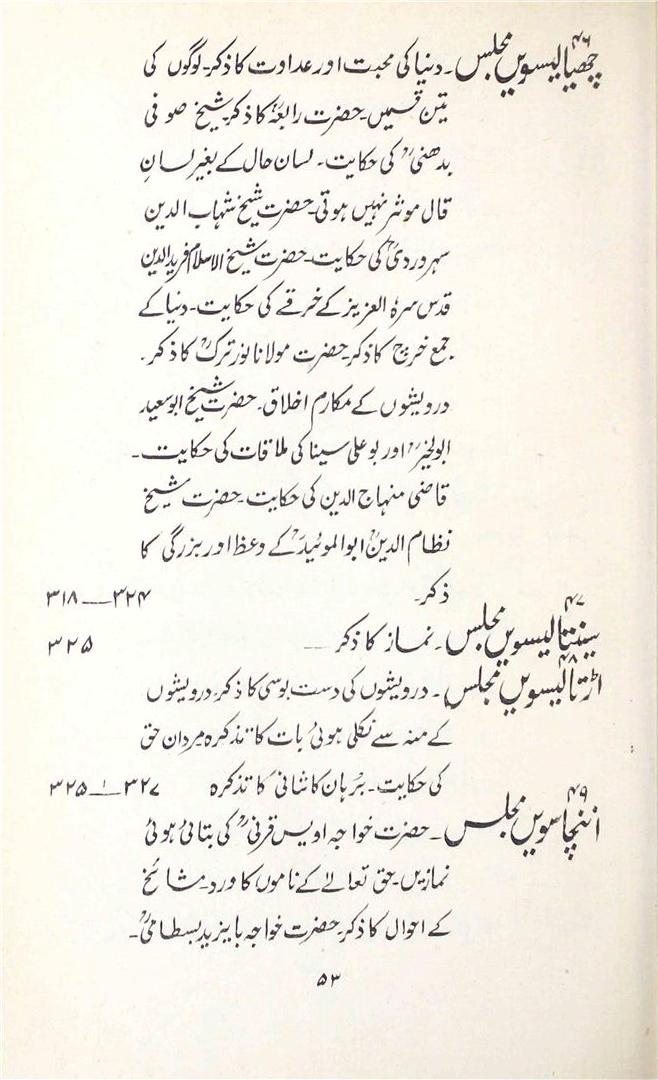 ۴۶
چھیالیسویں مجلس۔ دنیا کی محبت اور عداوت کا ذکر۔ لوگوں کی
تین قسمیں۔ حضرت رابعہؒ کا ذکر۔ شیخ صوفی
بدھنیؒ کی حکایت۔ لسان حال کے بغیر لسانِ
قال موثر نہیں ہوتی۔ حضرت شیخ شہاب الدین
سہروردیؒ کی حکایت۔ حضرت شیخ الاسلام فرید الدین
قدس سرہٗ العزیز کے خرقے کی حکایت۔ دنیا کے
جمع خرچ کا ذکر۔ حضرت مولانا نور ترکؒ کا ذکر۔
درویشوں کے مکارم اخلاق۔ حضرت شیخ ابو سعید
ابوالخیرؒ اور بو علی سینا کی ملاقات کی حکایت۔
قاضی منہاج الدین کی حکایت۔ حضرت شیخ
نظام الدینؒ ابوالموئیدؒ کے وعظ اور بزرگی کا
ذکر۔ ۳۲۴—۳۱۸
۴۷
سینتالیسویں مجلس۔ نماز کا ذکر — ۳۲۵
۴۸
اڑتالیسویں مجلس۔ درویشوں کی دست بوسی کا ذکر۔ درویشوں
کے منہ سے نکلی ہوئی بات کا تذکرہ مردان حق
کی حکایت۔ برہان کاشانی کا تذکرہ ۳۲۷—۳۲۵
۴۹
اننچاسویں مجلس۔ حضرت خواجہ اویس قرنیؒ کی بتائی ہوئی
نمازیں۔ حق تعالےٰ کے ناموں کا ورد۔ مشائخ
کے احوال کا ذکر۔ حضرت خواجہ بایزید بسطامیؒ۔
۵۳